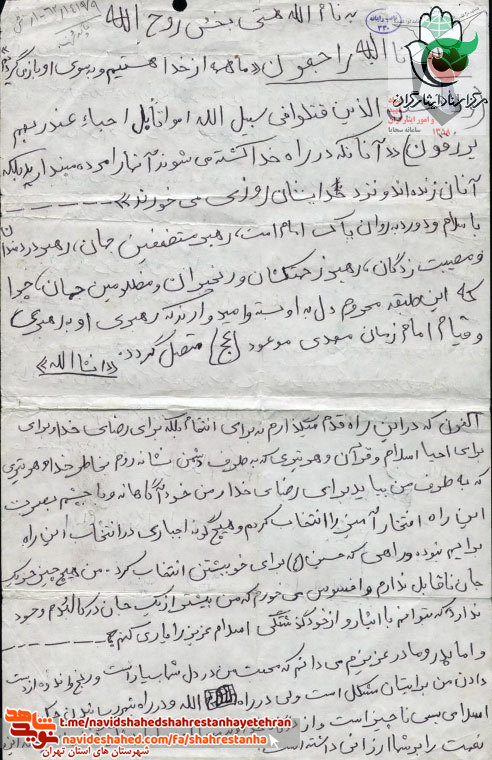 به نام الله هستی بخش روح الله
انا الیه راجعون «ما همه از خدا هستیم و بسوی او باز می‌گردیم»
الذین قتلوا فی سبیل الله امواتا بل احیاء عند ربهم
یرزقون «آنانکه در راه خدا کشته می شوند آنها را مرده مپندارید بلکه
آنان زنده اند و نزد خدایشان روزی می خورند»
با سلام و درود بروان پاک امام امت، رهبر مستضعفین جهان، رهبر دردمندان
و مصیبت زدگان، رهبر زحمتکشان و رنجبران و مظلومین جهان، چرا
که این طبقه محروم دل به او بسته و امیدوارند که رهبری او به رهبری
و قیام امام زمان مهدی موعود (عج) متصل گردد. «انشاالله»
اکنون که در این راه قدم میگذارم نه برای انتقام بلکه برای رضای خدا و برای
برای احیا اسلام و قرآن و هر تیری که به طرف دشمن نشانه روم بخاطر خدا و هر تیری
که به طرف من بیاید برای رضای خدا و من خود آگاهانه و با چشم بصیرت
این راه افتخار آمیز را انتخاب کردم و هیچ گونه اجباری در انتخاب این راه
برایم نبوده و راهی که حسین (ع) برای خویشتن انتخاب کرد. من هیچ چیز جز یک
جان ناقابل ندارم و افسوس می خورم که من بیشتر از یک جان در کالبدم وجود
ندارد که بتوانم با ایثار و از خود گذشتگی اسلام عزیز را یاری کنم.
و اما پدر و مادر عزیزم می دانم که محبت من در دل شما بسیار است و رنج و اندوه از دست
دادن من برایتان مشکل است ولی در راه الله و در راه
اسلامی بسی ناچیز است و از
نعمت را بر شما ارزانی داشته است.
مرکز اسناد ایثارگران
و امور ایثارگران
سامانه سجایا
نوید شاهد
t.me/navidshahedshahrestanhayetehran
navideshahed.com/fa/shahrestanha
شهرستان های استان تهران